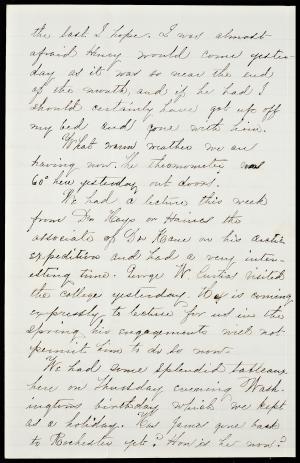 the last I hope. I was almost
afraid Henry would come yester-
day as it was so near the end
of the month, and if he had I
should certainly have got up off
my bed and gone with him.
What warm weather we are
having now. The theomometer was
60° here yesterday, out doors.
We had a lecture this week
from Dr Hays or Haines the
associate of Dr Kane on his arctic
expedition and had a very inter-
esting time. George W. Curtis visited
the college yesterday. He is coming
expressly to lecture for us in the
spring, his engagements will not
permit him to do so now.
We had some splendid tableaux
here on Thursday evening Wash-
ingtons birthday which we kept
as a holiday. Has James gone back
to Rochester yet? How is he now?